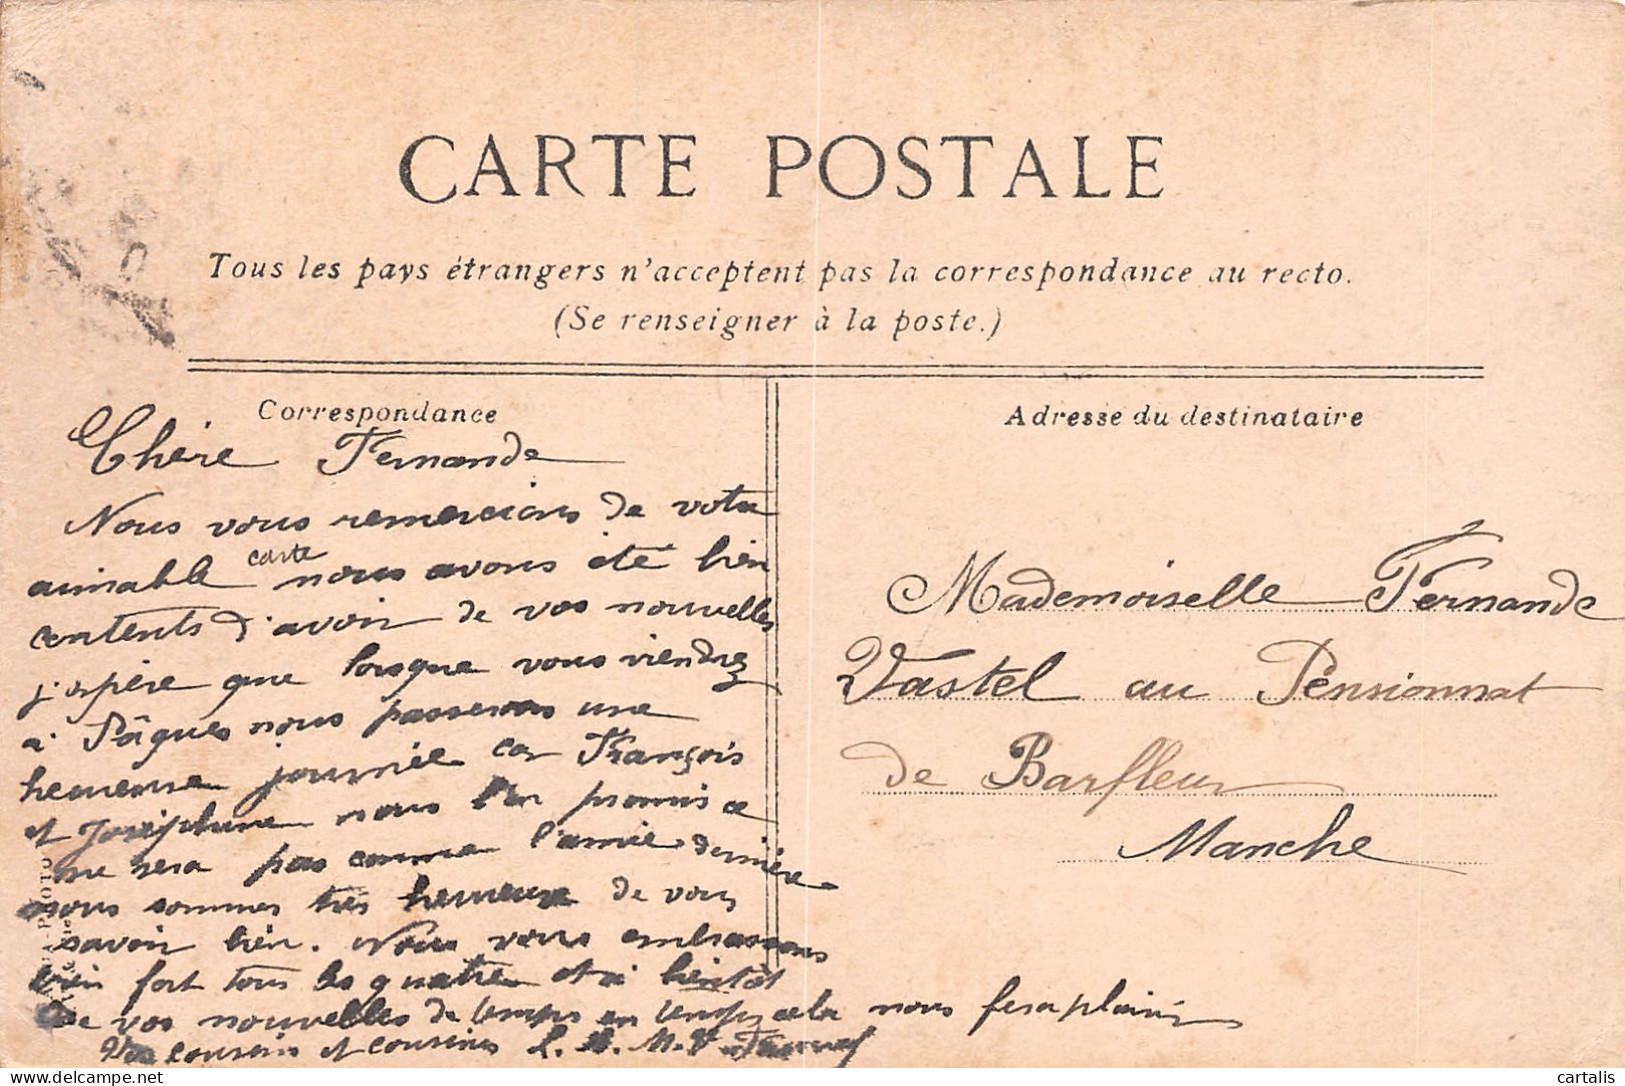 CARTE POSTALE
Tous les pays étrangers n'acceptent pas la correspondance au recto.
(Se renseigner à la poste.)
Correspondance
Chère Fernande
Nous vous remercions de votre
aimable carte nous avons été bien
contents d'avoir de vos nouvelles
j'espère que lorsque vous viendrez
à Pâques nous passerons une
heureuse journée car François
et Joséphine nous l'on promis ce
ne sera pas comme l'année dernière
nous sommes très heureux de vous
savoir bien. Nous vous embrassons
bien fort tous les quatre et à bientôt
de vos nouvelles de temps en temps cela nous fera plaisir
Vos cousins et cousines
Adresse du destinataire
Mademoiselle Fernande
Vastel au Pensionnat
de Barfleur
Manche
PHOTO
cartalis